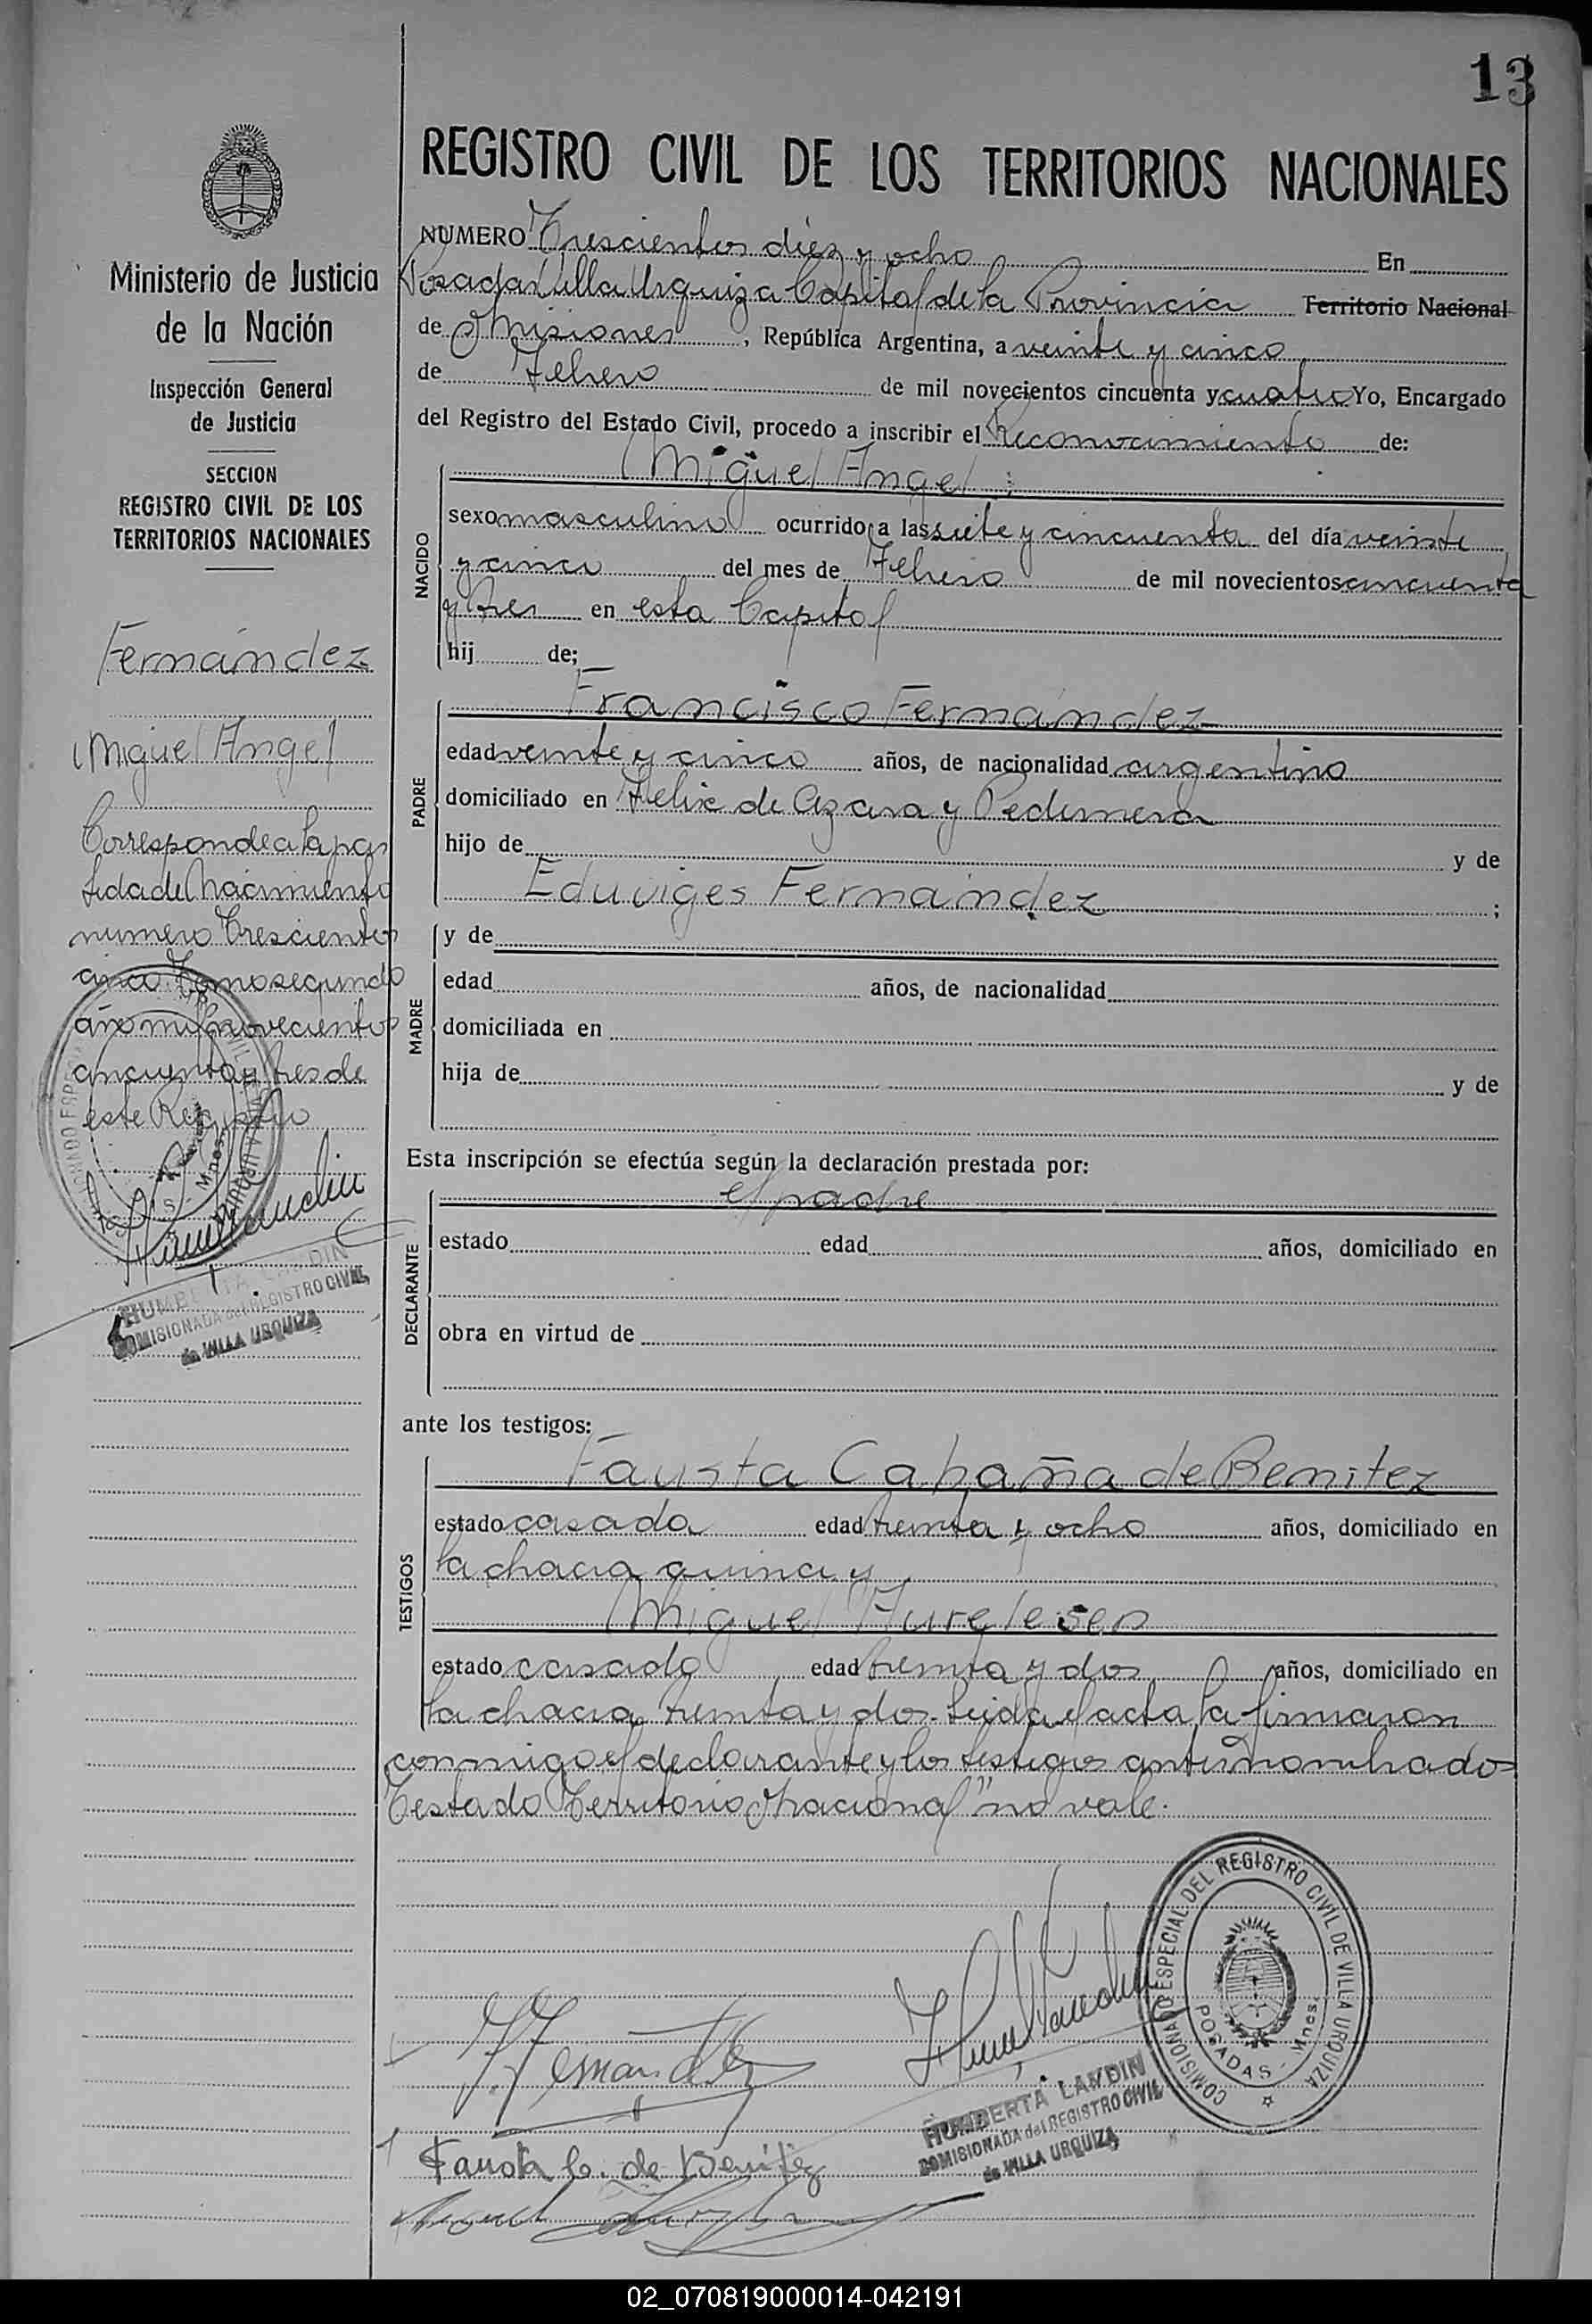 13
REGISTRO CIVIL DE LOS TERRITORIOS NACIONALES
Ministerio de Justicia
de la Nación
Inspección General
de Justicia
SECCION
REGISTRO CIVIL DE LOS
TERRITORIOS NACIONALES
Fernández
Miguel Angel
Corresponde a la par
tida de Nacimiento
numero Trescientos
cinco Tomo segundo
año mil novecientos
cincuenta y tres de
este Registro
HUMBERTA LANDIN
COMISIONADA del REGISTRO CIVIL
de VILLA URQUIZA
NUMERO Trescientos diez y ocho En
Posadas Villa Urquiza Capital de la Provincia Territorio Nacional
de Misiones, República Argentina, a veinte y cinco
de Febrero de mil novecientos cincuenta y cuatro Yo, Encargado
del Registro del Estado Civil, procedo a inscribir el Reconocimiento de:
Miguel Angel
NACIDO
sexo masculino ocurrido a las siete y cincuenta del día veinte
y cinco del mes de Febrero de mil novecientos cincuenta
y tres en esta Capital
hij de;
Francisco Fernández
PADRE
edad veinte y cinco años, de nacionalidad argentino
domiciliado en Felix de Azara y Pedernera
hijo de y de
Eduviges Fernández ;
MADRE
y de
edad años, de nacionalidad
domiciliada en
hija de y de
Esta inscripción se efectúa según la declaración prestada por:
el padre
DECLARANTE
estado edad años, domiciliado en
obra en virtud de
ante los testigos:
Fausta Cabaña de Benitez
TESTIGOS
estado casada edad treinta y ocho años, domiciliado en
la chacra quince y
Miguel
estado casado edad treinta y dos años, domiciliado en
la chacra treinta y dos. Leida el acta la firmaron
conmigo el declarante y los testigos antes nombrados
Testado "Territorio Nacional" no vale.
F. Fernandez
Fausta C. de Benitez
HUMBERTA LANDIN
COMISIONADA del REGISTRO CIVIL
de VILLA URQUIZA
COMISIONADO ESPECIAL DEL REGISTRO CIVIL DE VILLA URQUIZA
POSADAS - Mnes.
02_070819000014-042191